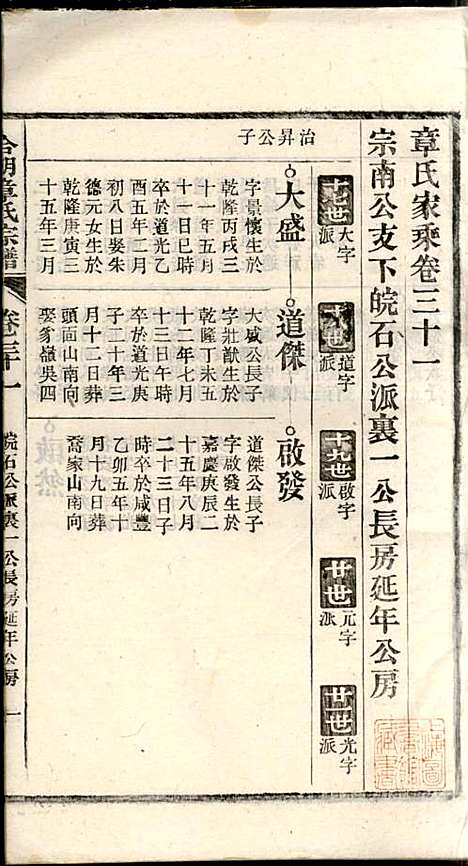 章氏家乘卷三十一
宗南公支下皖石公派裏一公長房延年公房
十七世 大字派
十八世 道字派
十九世 啟字派
廿世 元字派
廿世 光字派
治昇公子
大盛
道傑
啟發
字景懷生於
乾隆丙戌三
十一年五月
十一日巳時
卒於道光乙
酉五年二月
初八日娶朱
德元女生於
乾隆庚寅三
十五年三月
大盛公長子
字壯猷生於
乾隆丁未五
十二年七月
十三日午時
卒於道光庚
子二十年三
月十二日葬
頭面山南向
娶豸嶺吳四
道傑公長子
字啟發生於
嘉慶庚辰二
十五年八月
二十三日子
時卒於咸豐
乙卯五年十
月十九日葬
喬家山南向
章氏宗譜
卷三十一
皖石公派裏一公長房延年公房
一